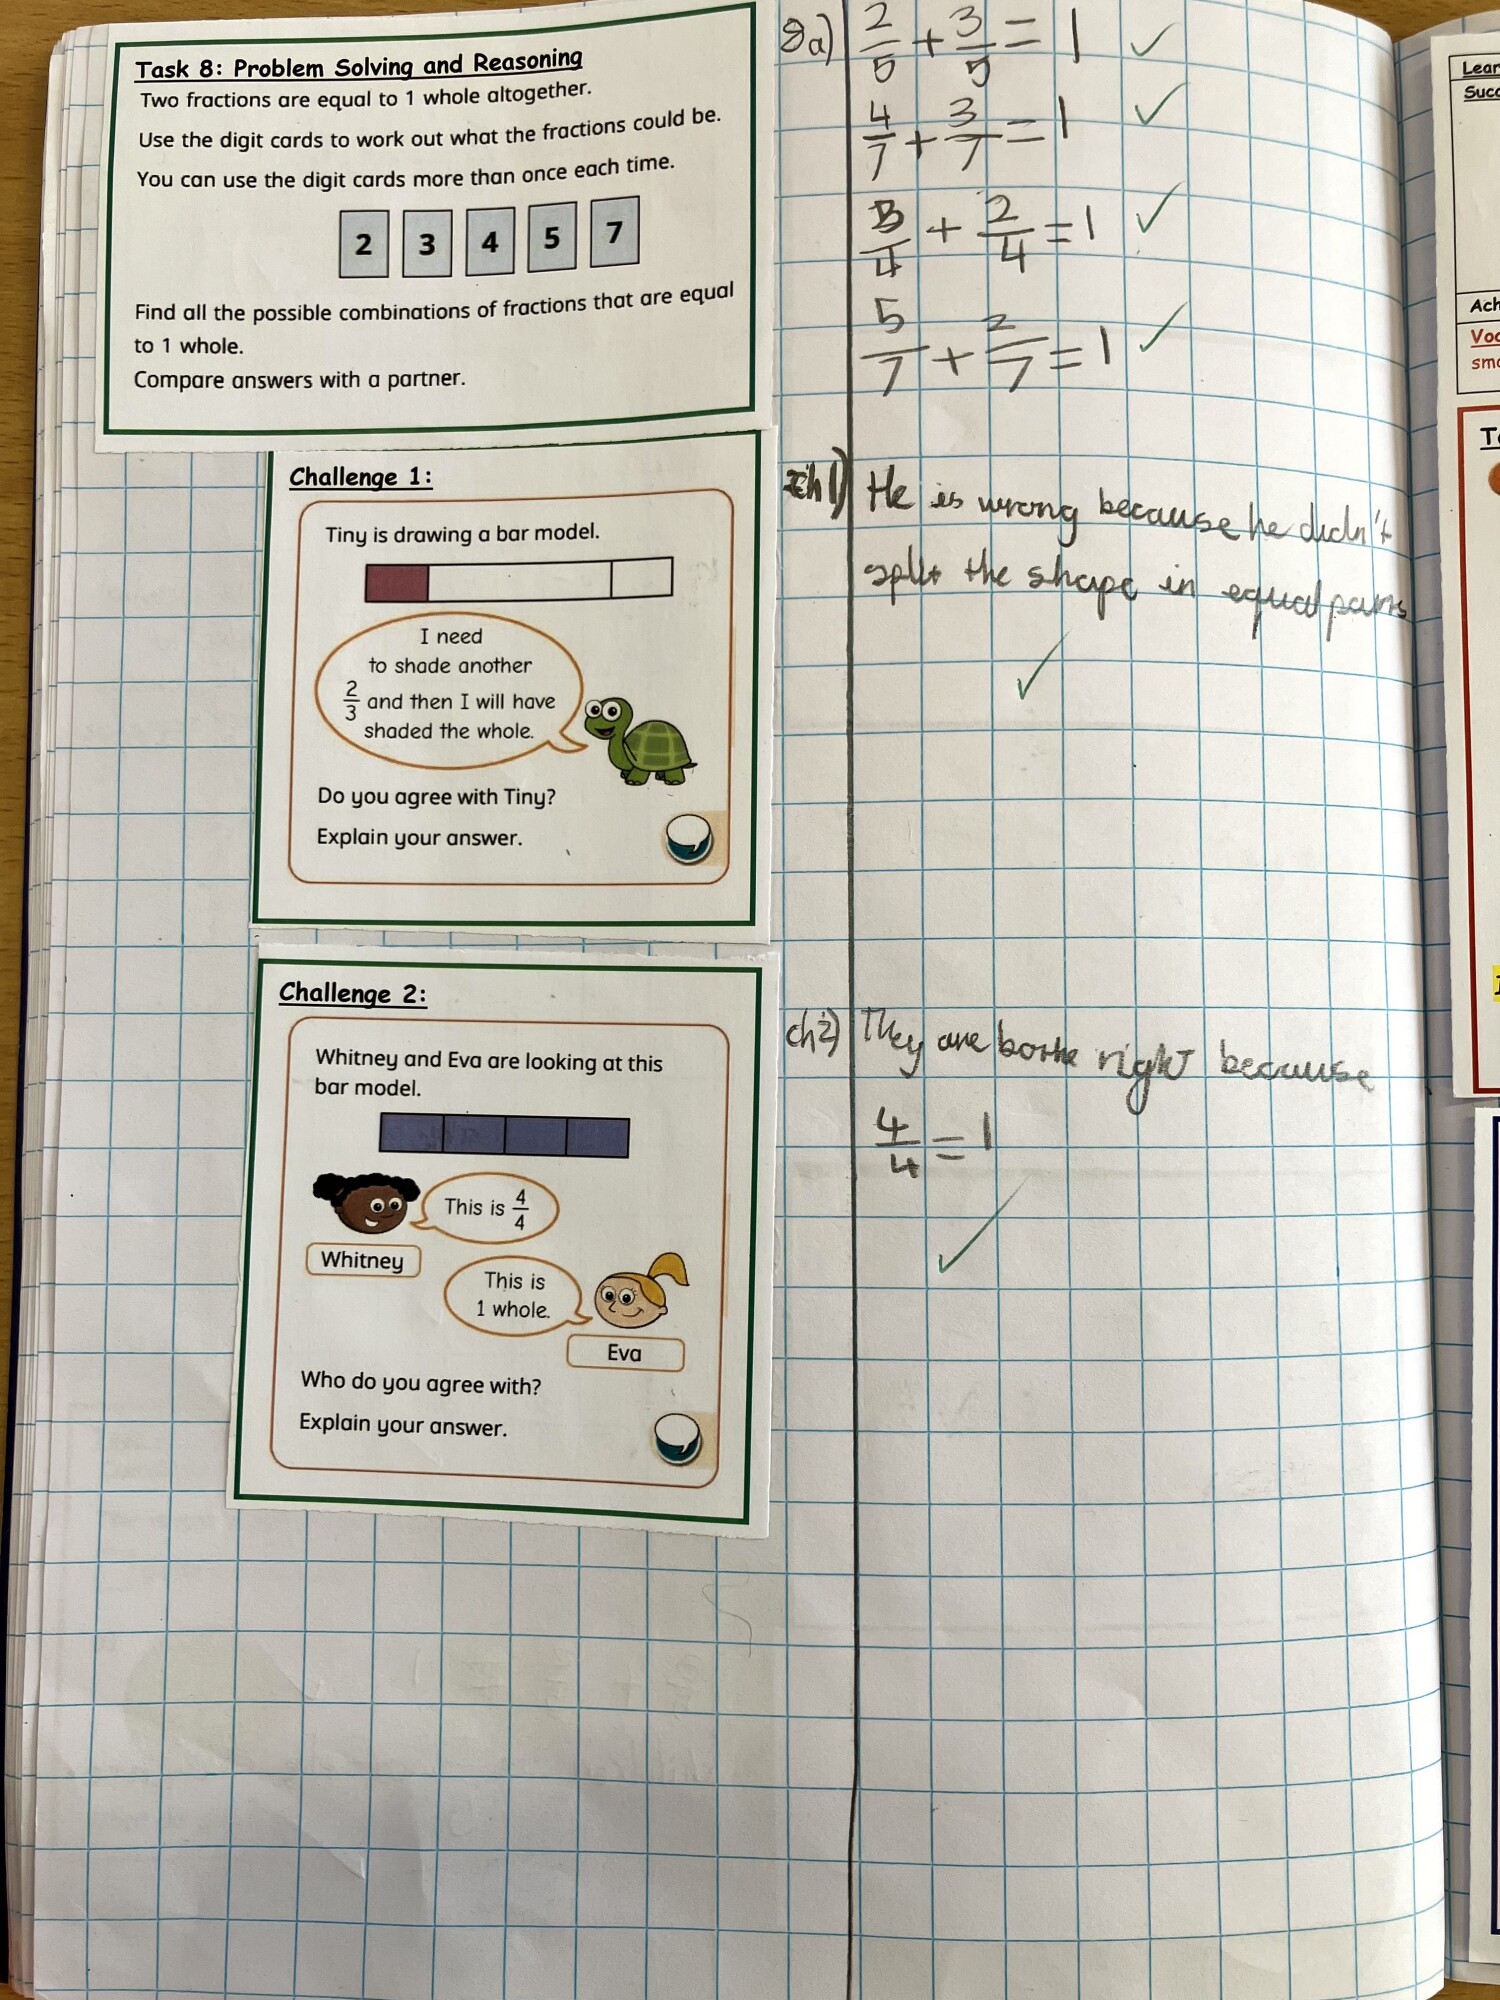 Task 8: Problem Solving and Reasoning
Two fractions are equal to 1 whole altogether.
Use the digit cards to work out what the fractions could be.
You can use the digit cards more than once each time.
2 3 4 5 7
Find all the possible combinations of fractions that are equal
to 1 whole.
Compare answers with a partner.
Challenge 1:
Tiny is drawing a bar model.
I need
to shade another
2/3 and then I will have
shaded the whole.
Do you agree with Tiny?
Explain your answer.
Challenge 2:
Whitney and Eva are looking at this
bar model.
This is 4/4
Whitney
This is
1 whole.
Eva
Who do you agree with?
Explain your answer.
8a) 2/5 + 3/5 = 1 ✓
4/7 + 3/7 = 1 ✓
/4 + 2/4 = 1 ✓
5/7 + 2/7 = 1 ✓
ch1) He is wrong because he didn't
split the shape in equal parts
✓
ch2) They are bothe right because
4/4 = 1
✓
Lear
Succ
Ach
Voc
sma